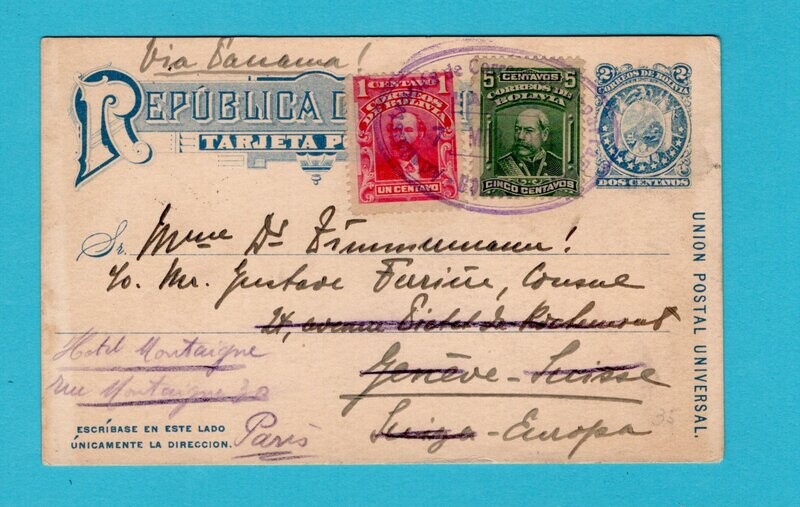 Via Panama!
REPÚBLICA D
TARJETA P
1 CENTAVO 1
CORREOS
DE BOLIVIA
UN CENTAVO
5 CENTAVOS 5
CORREOS DE
BOLIVIA
CINCO CENTAVOS
2 2
CORREOS DE BOLIVIA
DOS CENTAVOS
Sr. Mme Dr Zimmermann!
c/o Mr. Gustave Consul
24, avenue de
Genève-Suisse
Suiza-Europa
Hotel Montaigne
rue Montaigne
Paris
ESCRÍBASE EN ESTE LADO
ÚNICAMENTE LA DIRECCION.
UNION POSTAL UNIVERSAL.